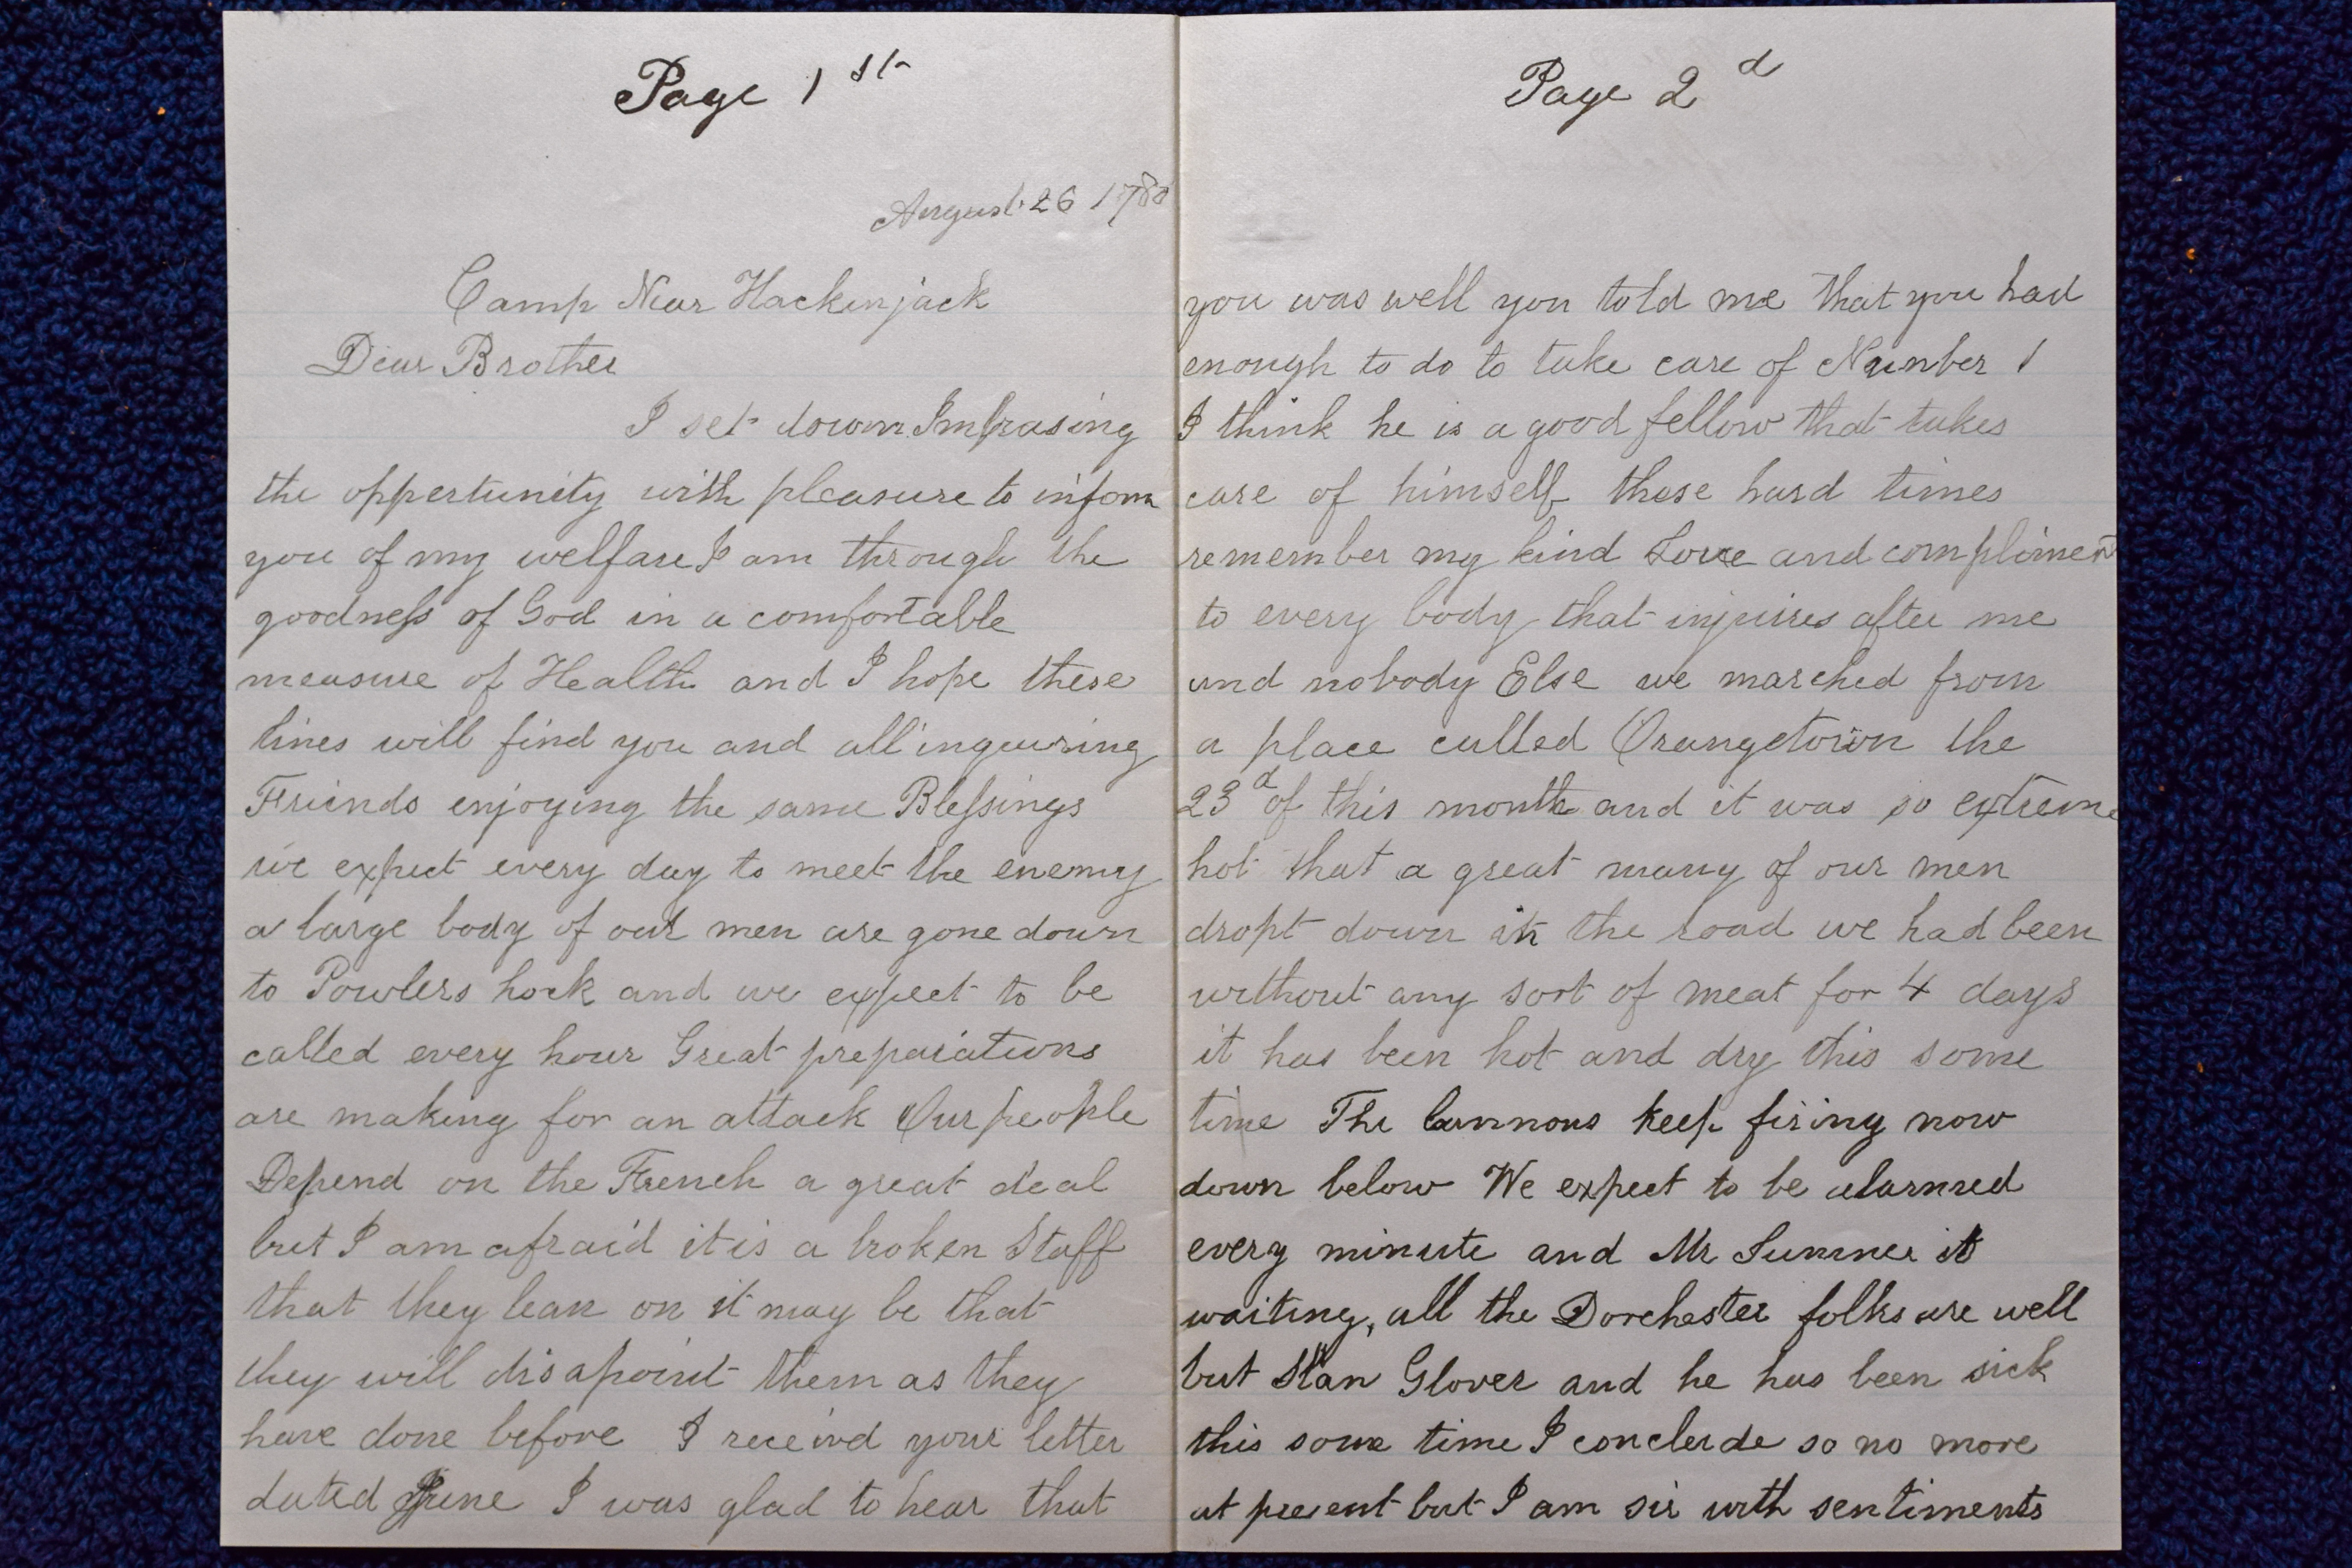 Page 1st
August 26 1780
Camp Near Hackinjack
Dear Brother
I set down Imbrasing
the oppertunity with pleasure to inform
you of my welfare I am through the
goodness of God in a comfortable
measure of Health and I hope these
lines will find you and all inqueiring
Friends enjoying the same Blessings
we expect every day to meet the enemy
a large body of our men are gone down
to Powlers hook and we expect to be
called every hour Great preparations
are making for an attack Our people
Depend on the French a great deal
but I am afraid it is a broken Staff
that they lean on it may be that
they will disapoint them as they
have done before I receivd your letter
dated June I was glad to hear that
Page 2d
you was well you told me that you had
enough to do to take care of Number 1
I think he is a good fellow that takes
care of himself these hard times
remember my kind Love and compliment
to every body that injuires after me
and nobody Else we marched from
a place called Orangetown the
23d of this month and it was so extreme
hot that a great many of our men
dropt down in the road we had been
without any sort of meat for 4 days
it has been hot and dry this some
time The Cannons keep firing now
down below We expect to be alarmed
every minute and Mr Sumner is
waiting, all the Dorchester folks are well
but Stan Glover and he has been sick
this some time I conclude so no more
at present but I am sir with sentiments